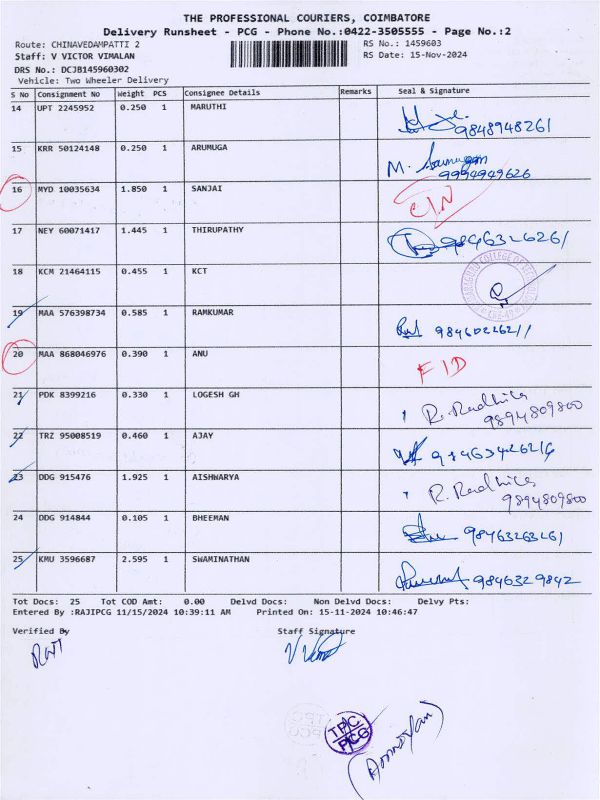 THE PROFESSIONAL COURIERS, COIMBATORE
Delivery Runsheet - PCG - Phone No.:0422-3505555 - Page No.:2
Route: CHINAVEDAMPATTI 2 RS No.: 1459603
Staff: V VICTOR VIMALAN RS Date: 15-Nov-2024
DRS No.: DCJB145960302
Vehicle: Two Wheeler Delivery
S No Consignment No Weight PCS Consignee Details Remarks Seal & Signature
14 UPT 2245952 0.250 1 MARUTHI 9848948261
15 KRR 50124148 0.250 1 ARUMUGA M. 9994949626
16 MYD 10035634 1.850 1 SANJAI C/N
17 NEY 60071417 1.445 1 THIRUPATHY 9846326261
18 KCM 21464115 0.455 1 KCT
19 MAA 576398734 0.585 1 RAMKUMAR
20 MAA 868046976 0.390 1 ANU FID
21 PDK 8399216 0.330 1 LOGESH GH R. Radhika 9894809800
22 TRZ 95008519 0.460 1 AJAY
23 DDG 915476 1.925 1 AISHWARYA R. Radhika 9894809800
24 DDG 914844 0.105 1 BHEEMAN 98463263261
25 KMU 3596687 2.595 1 SWAMINATHAN 9846329842
Tot Docs: 25 Tot COD Amt: 0.00 Delvd Docs: Non Delvd Docs: Delvy Pts:
Entered By :RAJIPCG 11/15/2024 10:39:11 AM Printed On: 15-11-2024 10:46:47
Verified By Staff Signature
TPC
PCG